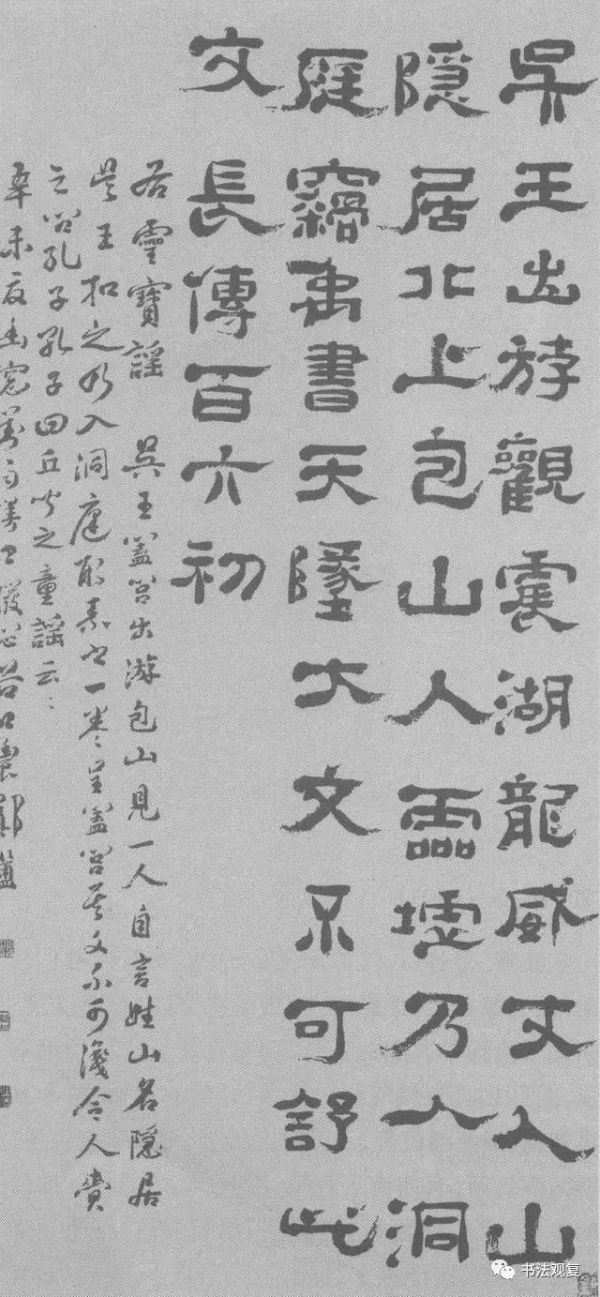 吳王出斿觀震湖龍威丈人山
隱居北上包山入靈墟乃入洞
庭竊禹書天墬大文不可舒此
文長傳百六初
右靈寶謠 吳王闔閭出游包山見一人自言姓山名隱居
吳王扣之乃入洞庭取素書一卷呈闔閭其文不可識令人賫
之問孔子孔子曰丘聞之童謠云〻
辛未夏 谷口農鄭簠
书法观复